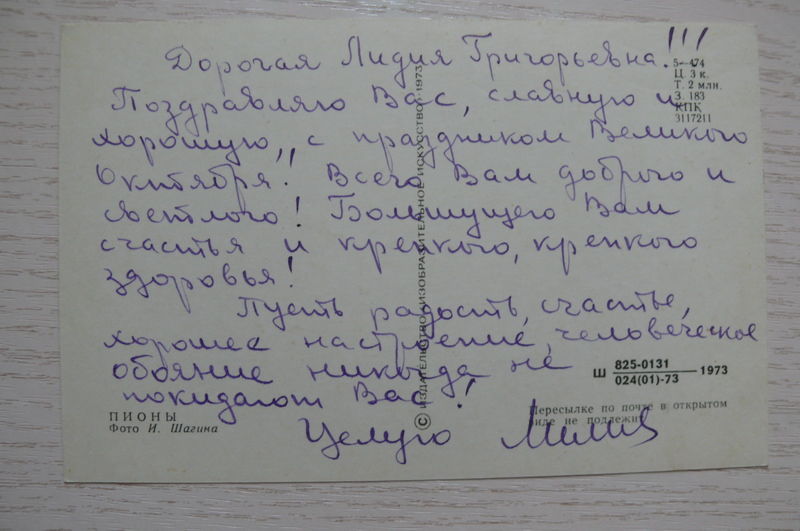 Дорогая Лидия Григорьевна!!!
Поздравляю Вас, славную и
хорошую, с праздником Великого
Октября! Всего Вам доброго и
светлого! Большущего Вам
счастья и крепкого, крепкого
здоровья!
Пусть радость, счастье,
хорошее настроение, человеческое
обояние никогда не
покидают Вас!
Целую
5-474
Ц. 3 к.
Т. 2 млн.
З. 183
КПК
3117211
© ИЗДАТЕЛЬСТВО «ИЗОБРАЗИТЕЛЬНОЕ ИСКУССТВО» 1973
Ш 825-0131 / 024(01)-73 1973
Пересылке по почте в открытом
виде не подлежит
ПИОНЫ
Фото И. Шагина